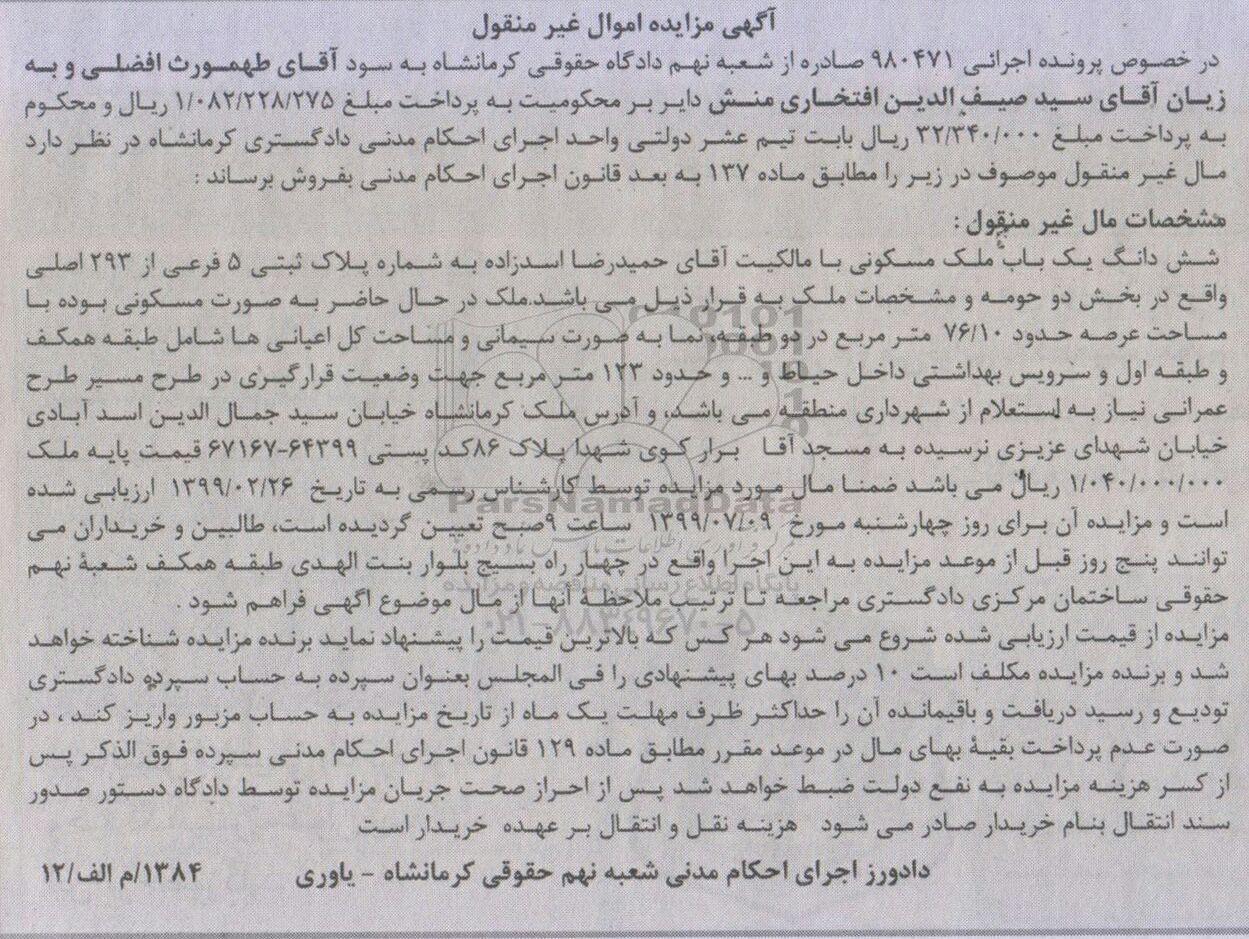 آگهی مزایده اموال غیر منقول
در خصوص پرونده اجرائی ۹۸۰۴۷۱ صادره از شعبه نهم دادگاه حقوقی کرمانشاه به سود آقای طهمورث افضلی و به
زیان آقای سید صیف الدین افتخاری منش دایر بر محکومیت به پرداخت مبلغ ۱/۰۸۲/۲۲۸/۲۷۵ ریال و محکوم
به پرداخت مبلغ ۳۲/۳۴۰/۰۰۰ ریال بابت تیم عشر دولتی واحد اجرای احکام مدنی دادگستری کرمانشاه در نظر دارد
مال غیر منقول موصوف در زیر را مطابق ماده ۱۳۷ به بعد قانون اجرای احکام مدنی بفروش برساند :
مشخصات مال غیر منقول :
شش دانگ یک باب ملک مسکونی با مالکیت آقای حمیدرضا اسدزاده به شماره پلاک ثبتی ۵ فرعی از ۲۹۳ اصلی
واقع در بخش دو حومه و مشخصات ملک به قرار ذیل می باشد.ملک در حال حاضر به صورت مسکونی بوده با
مساحت عرصه حدود ۷۶/۱۰ متر مربع در دو طبقه، نما به صورت سیمانی و مساحت کل اعیانی ها شامل طبقه همکف
و طبقه اول و سرویس بهداشتی داخل حیاط و ... و حدود ۱۲۳ متر مربع جهت وضعیت قرارگیری در طرح مسیر طرح
عمرانی نیاز به استعلام از شهرداری منطقه می باشد، و آدرس ملک کرمانشاه خیابان سید جمال الدین اسد آبادی
خیابان شهدای عزیزی نرسیده به مسجد آقا برار کوی شهدا پلاک ۸۶کد پستی ۶۴۳۹۹-۶۷۱۶۷ قیمت پایه ملک
۱/۰۴۰/۰۰۰/۰۰۰ ریال می باشد ضمنا مال مورد مزایده توسط کارشناس رسمی به تاریخ ۱۳۹۹/۰۲/۲۶ ارزیابی شده
است و مزایده آن برای روز چهارشنبه مورخ ۱۳۹۹/۰۷/۰۹ ساعت ۹صبح تعیین گردیده است، طالبین و خریداران می
توانند پنج روز قبل از موعد مزایده به این اجرا واقع در چهار راه بسیج بلوار بنت الهدی طبقه همکف شعبۀ نهم
حقوقی ساختمان مرکزی دادگستری مراجعه تا ترتیب ملاحظۀ آنها از مال موضوع آگهی فراهم شود .
مزایده از قیمت ارزیابی شده شروع می شود هر کس که بالاترین قیمت را پیشنهاد نماید برنده مزایده شناخته خواهد
شد و برنده مزایده مکلف است ۱۰ درصد بهای پیشنهادی را فی المجلس بعنوان سپرده به حساب سپرده دادگستری
تودیع و رسید دریافت و باقیمانده آن را حداکثر ظرف مهلت یک ماه از تاریخ مزایده به حساب مزبور واریز کند ، در
صورت عدم پرداخت بقیۀ بهای مال در موعد مقرر مطابق ماده ۱۲۹ قانون اجرای احکام مدنی سپرده فوق الذکر پس
از کسر هزینه مزایده به نفع دولت ضبط خواهد شد پس از احراز صحت جریان مزایده توسط دادگاه دستور صدور
سند انتقال بنام خریدار صادر می شود هزینه نقل و انتقال بر عهده خریدار است
دادورز اجرای احکام مدنی شعبه نهم حقوقی کرمانشاه - یاوری ۱۳۸۴/م الف/۱۲
ParsNamadData
پایگاه اطلاع رسانی مناقصه و مزایده
۰۲۱-۸۸۳۴۹۶۷۰-۵